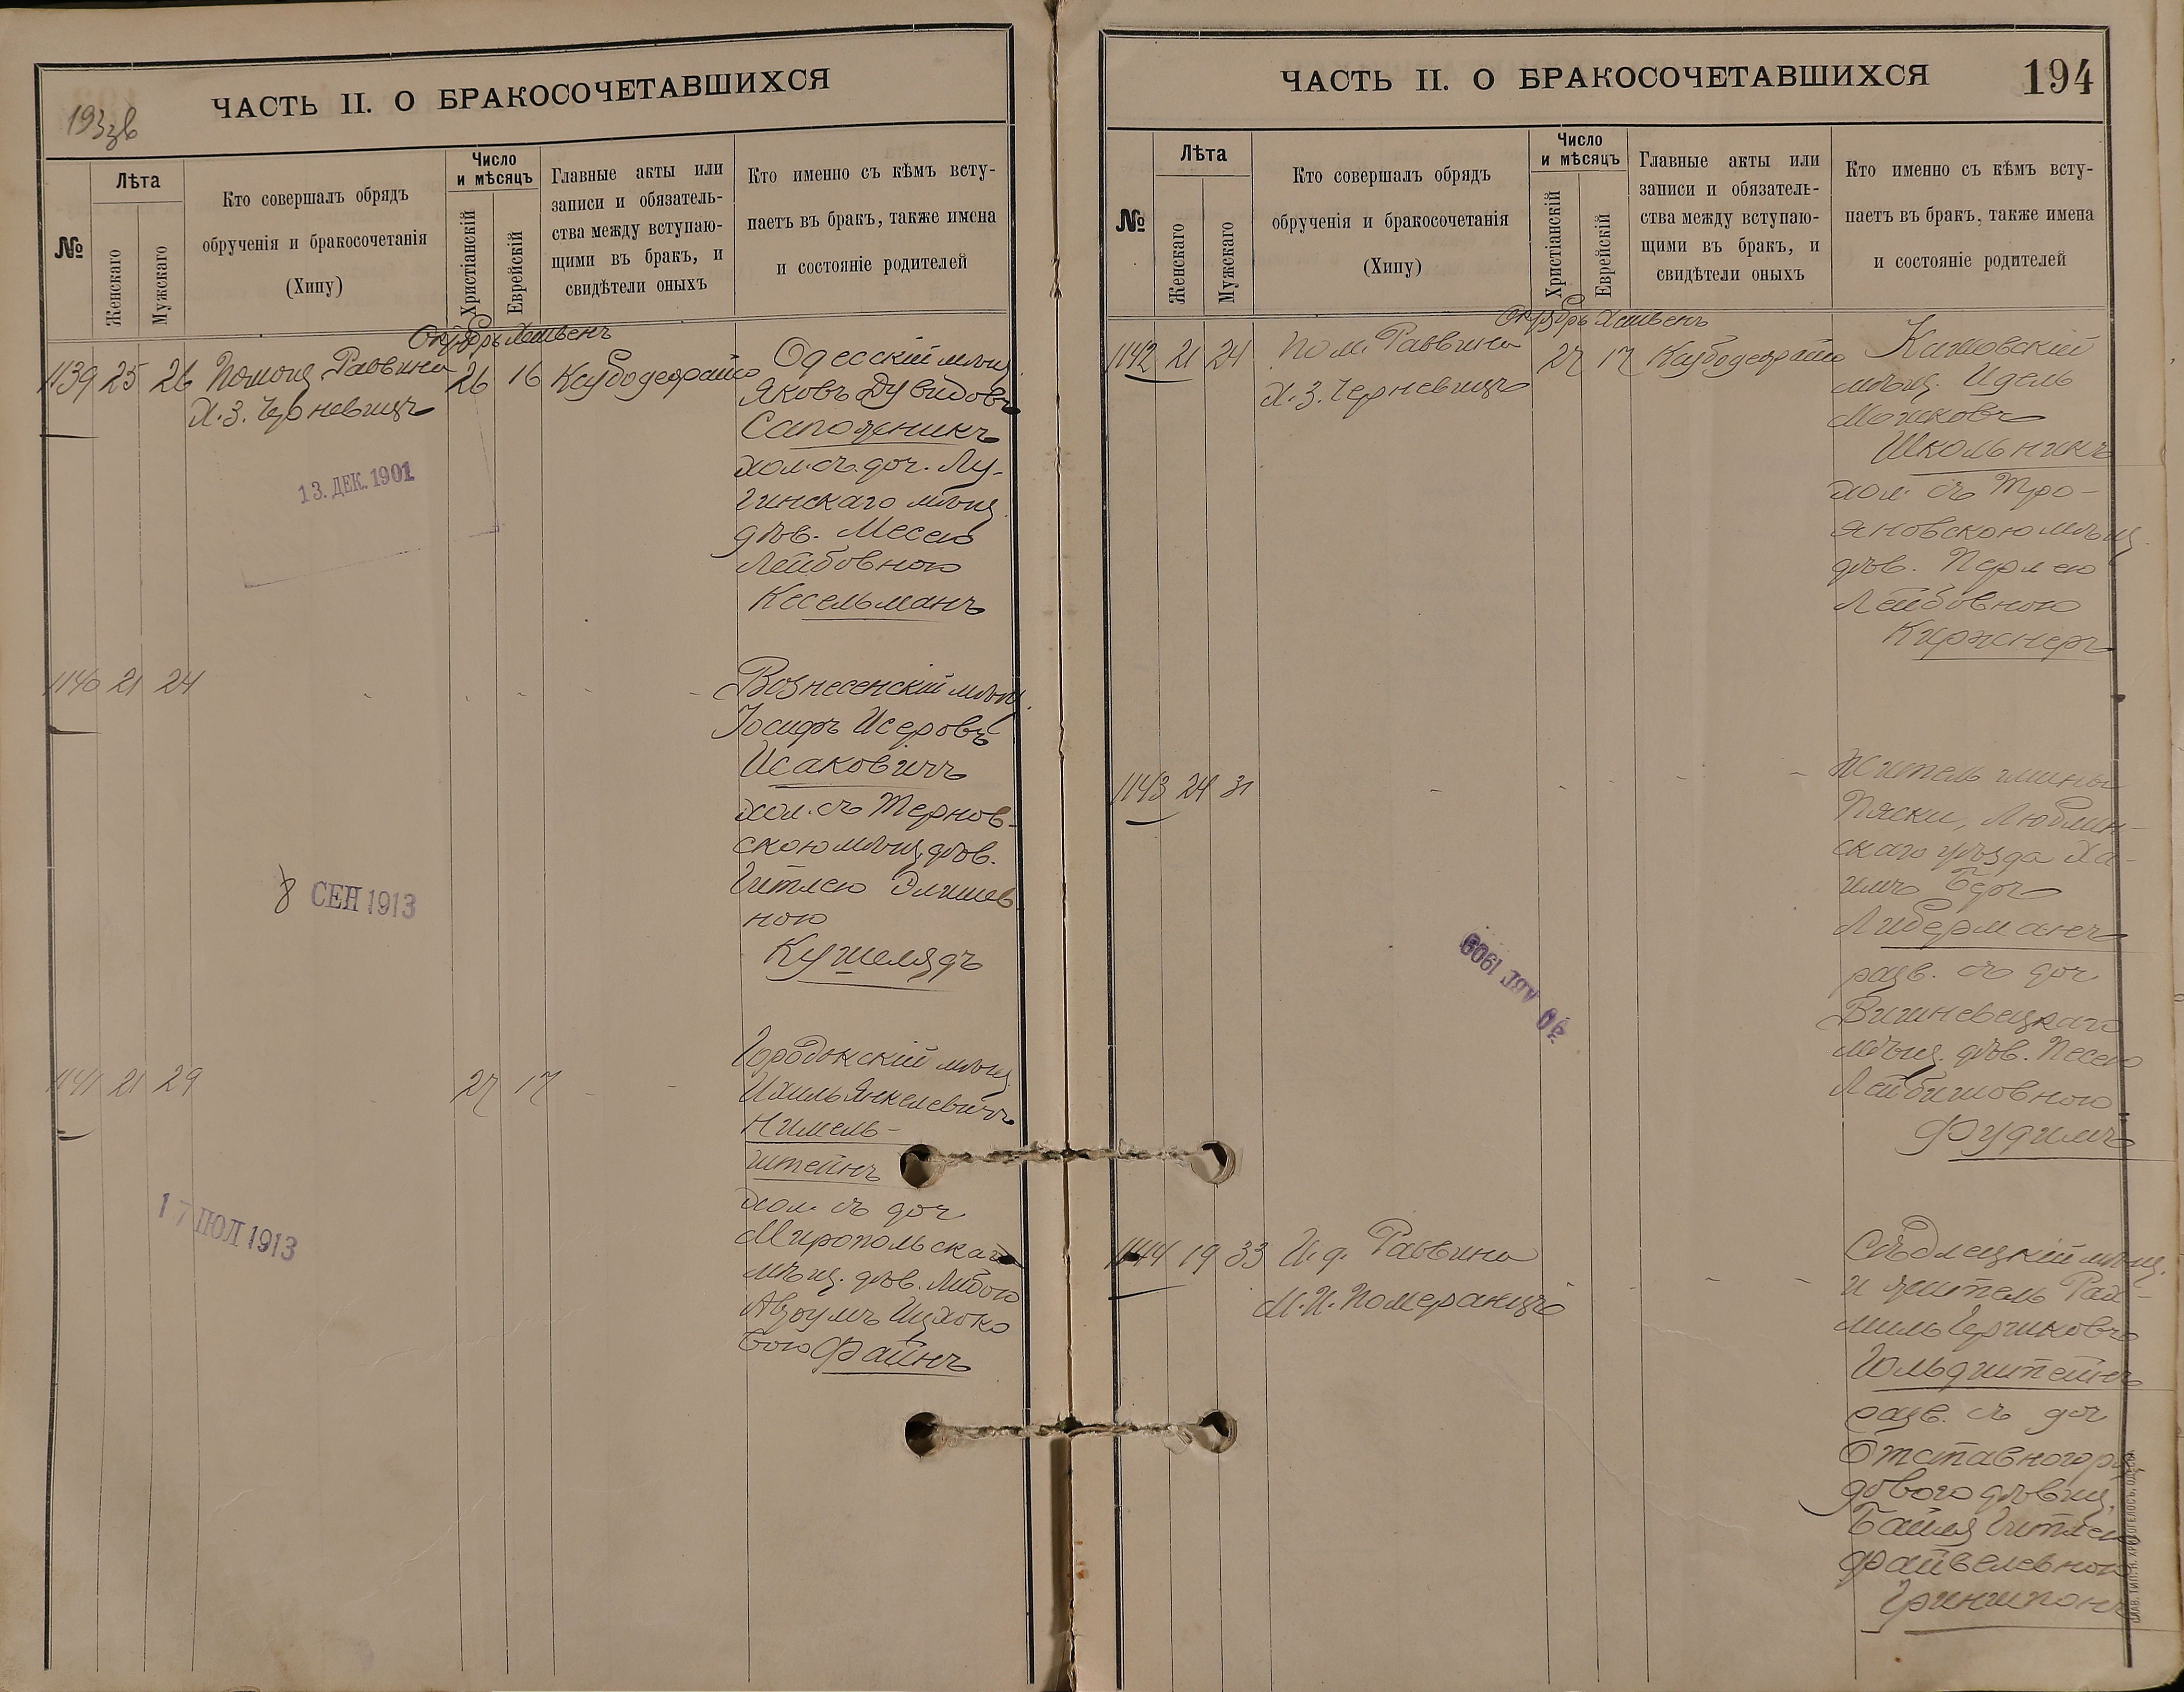 ЧАСТЬ II. О БРАКОСОЧЕТАВШИХСЯ
193 зв
№
Лѣта
Женскаго
Мужскаго
Кто совершалъ обрядъ
обрученія и бракосочетанія
(Хипу)
Число
и мѣсяцъ
Христіанскій
Еврейскій
Главные акты или
записи и обязатель-
ства между вступаю-
щими въ бракъ, и
свидѣтели оныхъ
Кто именно съ кѣмъ всту-
паетъ въ бракъ, также имена
и состояніе родителей
Октябрь Хешвенъ
1139 25 26 Помощ. Раввина 26 16
Х. З. Черневицъ
Одесскій мѣщ.
Яковъ Дувидовъ
Сапожникъ
хол. съ доч. Лу-
гинскаго мѣщ.
дѣв. Месею
Лейбовною
Кесельманъ
13. ДЕК. 1901
1140 21 24
Вознесенскій мѣщ.
Іосифъ Исеровъ
Исаковичъ
хол. съ Тернов-
скою мѣщ. дѣв.
Гитлею Элишев
ною
Кушелядъ
8 СЕН 1913
1141 21 29 27 17
Городокскій мѣщ.
Ихиль Янкелевичъ
Нимель-
штейнъ
хол. съ доч
Миропольскаго
мѣщ. дѣв. Либою
Аврумъ Ицхоко
вою Файнъ
17 ІЮЛ 1913
ЧАСТЬ II. О БРАКОСОЧЕТАВШИХСЯ
194
№
Лѣта
Женскаго
Мужскаго
Кто совершалъ обрядъ
обрученія и бракосочетанія
(Хипу)
Число
и мѣсяцъ
Христіанскій
Еврейскій
Главные акты или
записи и обязатель-
ства между вступаю-
щими въ бракъ, и
свидѣтели оныхъ
Кто именно съ кѣмъ всту-
паетъ въ бракъ, также имена
и состояніе родителей
Октябрь Хешвенъ
1142 21 24 Пом. Раввина 27 17
Х. З. Черневицъ
мѣщ. Идель
Мошковъ
Школьникъ
хол. съ Тро-
яновскою мѣщ.
дѣв. Перлею
Лейбовною
Киржнеръ
1143 24 31
Житель гмины
Пяски, Люблин-
скаго уѣзда Ха-
имъ Беръ
Либерманъ
разв. съ доч
Вишневецкаго
мѣщ. дѣв. Песею
Лейбишовною
Фудимъ
АВГ 1909
1144 19 33 И. д. Раввина
М. И. Померанцъ
Сѣдлецкій мѣщ.
и житель Рах-
миль Гершковъ
Гольдштейнъ
разв. съ доч
Отставного ря
дового дѣвиц.
Байля Гитлею
Файвелевною
Гриншпонъ